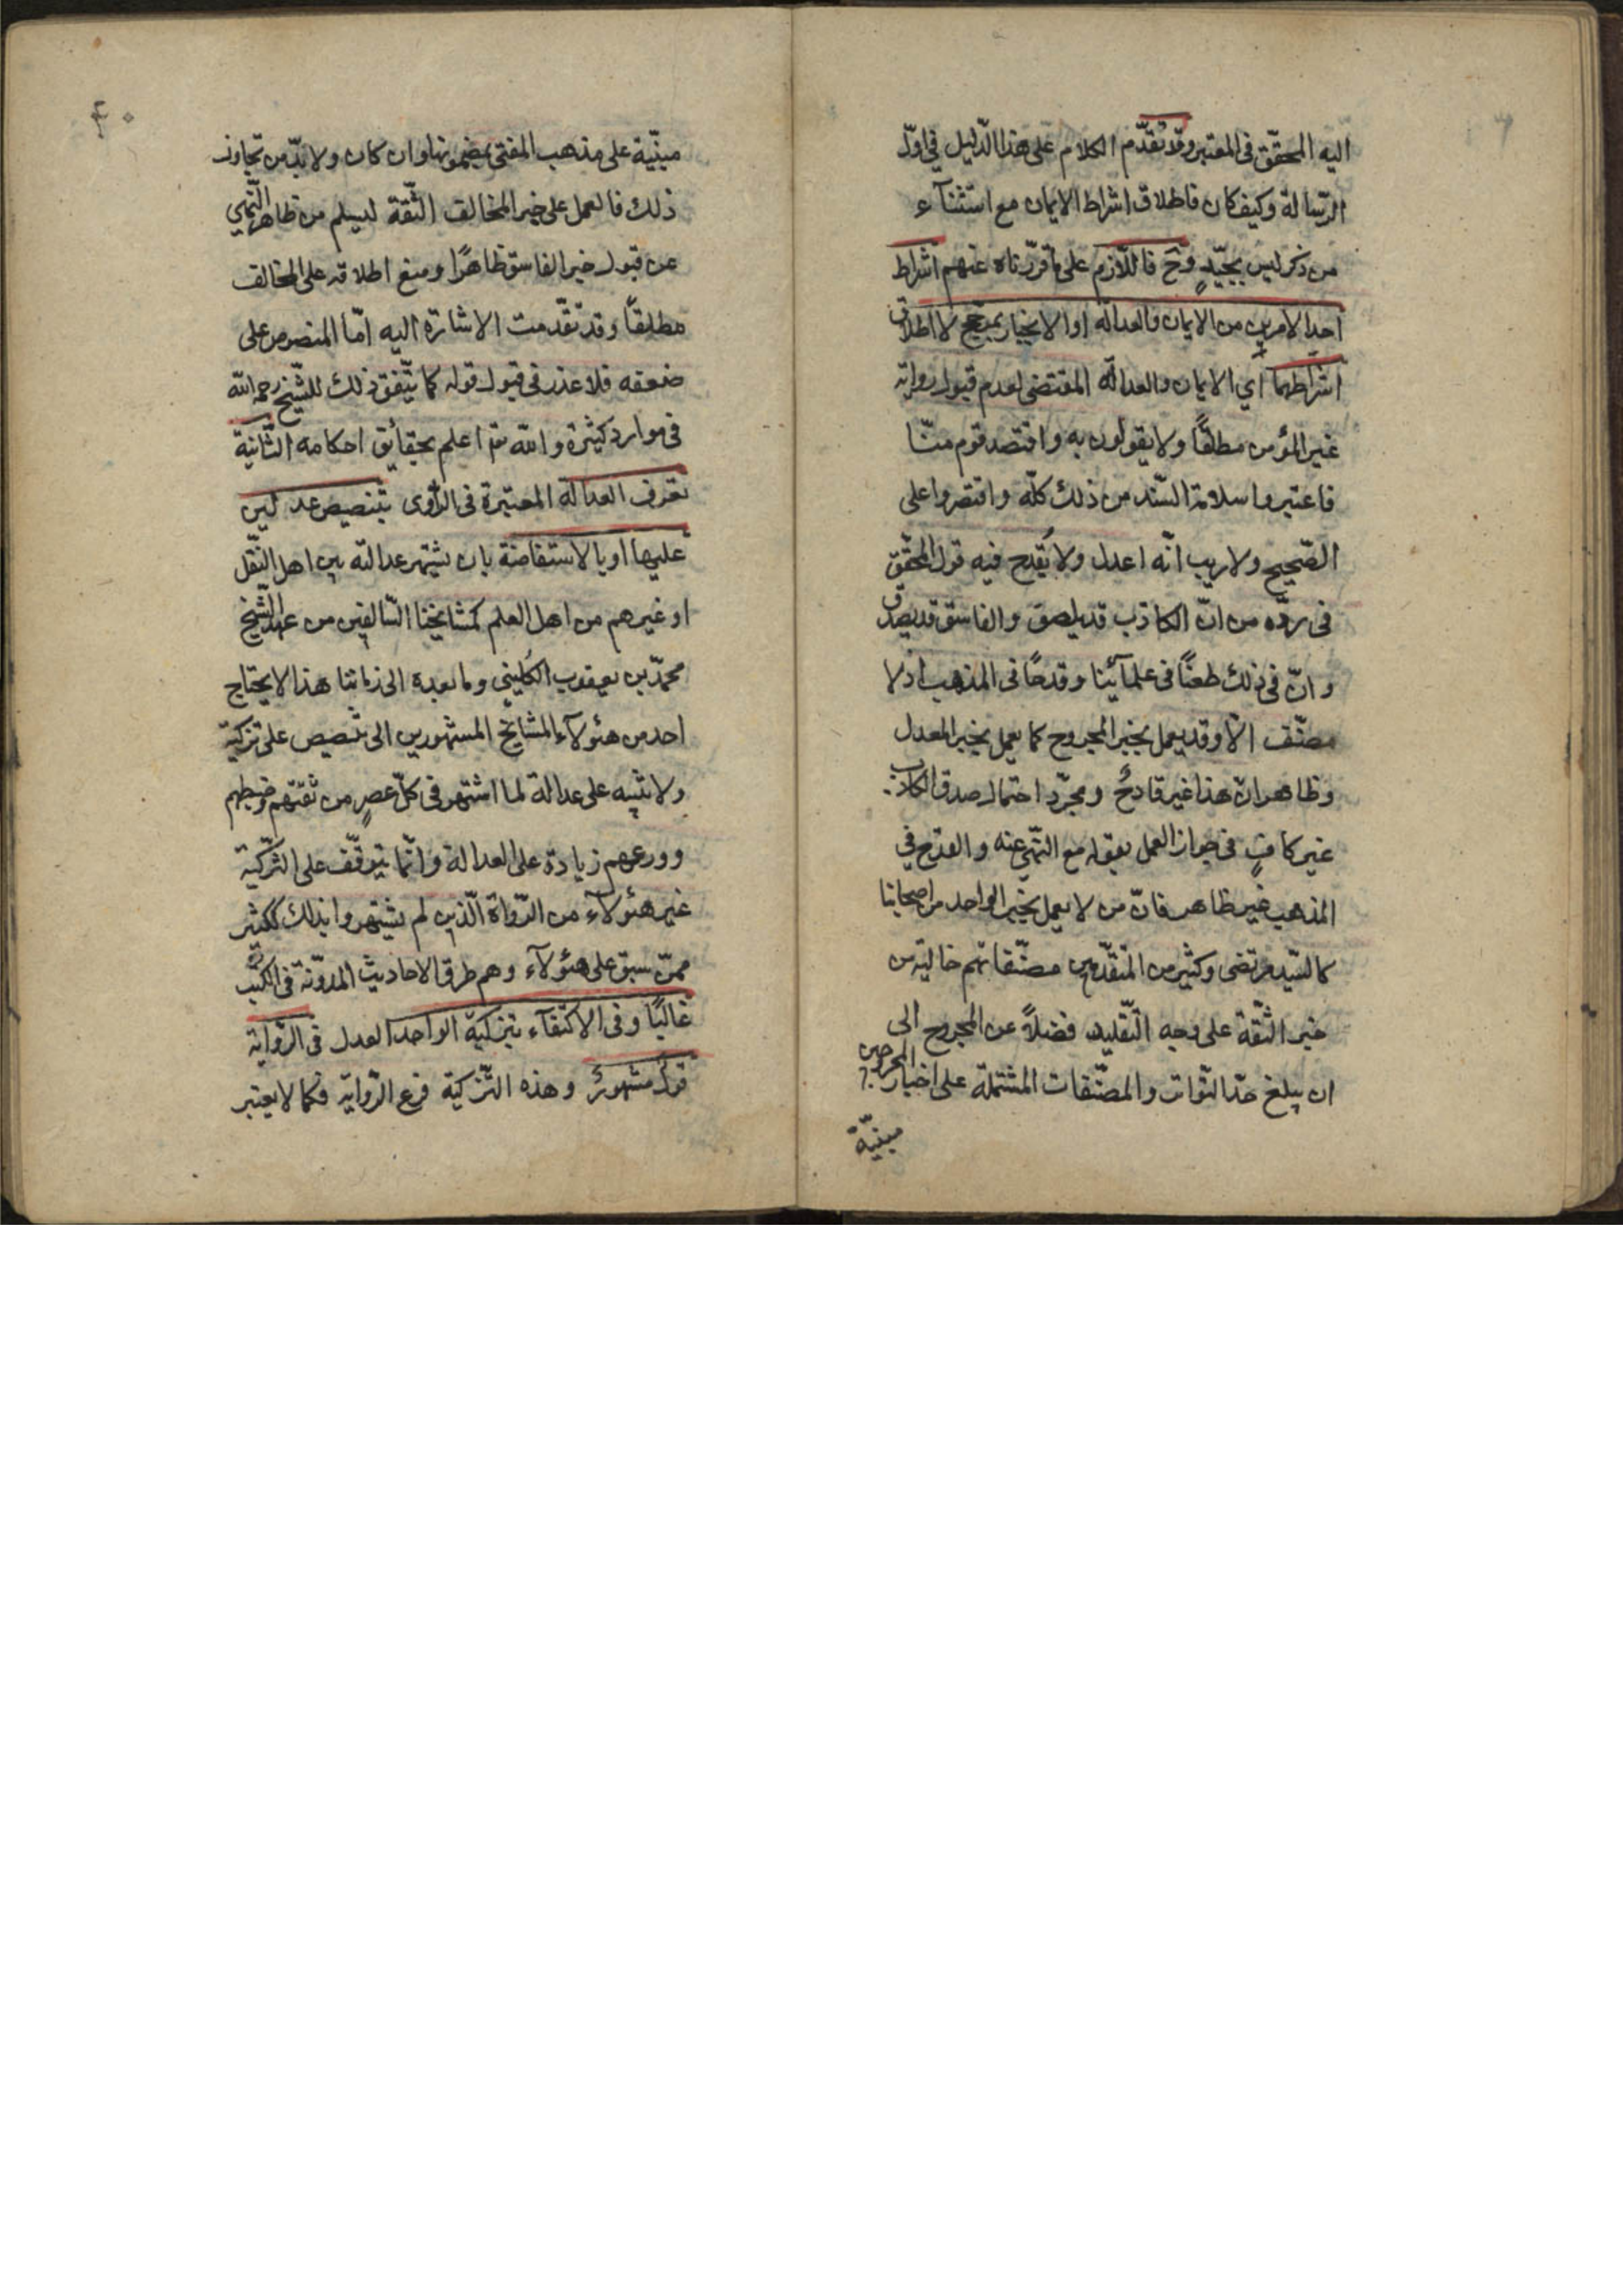 اليه المحقّق في المعتبر وقد تقدّم الكلام على هذا الدّليل في اوّل
الرّسالة وكيف كان فاطلاق اشراط الايمان مع استثناء
من ذكر ليس بجيّدٍ وح فاللّازم على ما قرّرناه عنهم اشراط
احد الامرين من الايمان والعدالة او الانجبار بمرجّح لا اطلاق
اشراطهما اي الايمان والعدالة المقتضي لعدم قبول رواية
غير المؤمن مطلقًا ولا يقولون به واقتصد قوم منّا
فاعتبروا سلامة السّند من ذلك كلّه واقتصروا على
الصّحيح ولا ريب انّه اعدل ولا يُقدح فيه قول المحقّق
في ردّه من انّ الكاذب قد يلصق والفاسق قد يصدق
وانّ في ذلك طعنًا في علمآئنا وقدحًا في المذهب اذ لا
مصنّف الّا وقد يعمل بخبر المجروح كما يعمل بخبر المعدل
وظاهر انّ هذا غير قادحٌ ومجرّد احتمال صدق الكاذب
غير كافٍ في جواز العمل بقوله مع النّهي عنه والقدح في
المذهب غير ظاهر فانّ من لا يعمل بخبر الواحد من اصحابنا
كالسّيد مرتضى وكثير من المتقدّمين مصنّفاتهم خالية من
خبر الثّقة على وجه التّقليد فضلًا عن المجروح الى
ان يبلغ حدّ التّواتر والمصنّفات المشتملة على اخبار المجروحين
مبنيّة
۴۰
مبنيّة على مذهب المفتي بمضمونها وان كان ولا بدّ من تجاوز
ذلك فالعمل على خبر المخالف الثّقة ليسلم من ظاهر النّهي
عن قبول خبر الفاسق ظاهرًا ومنع اطلاقه على المخالف
مطلقاً وقد تقدّمت الاشارة اليه امّا المنصوص على
ضعفه فلا عذر في قبول قوله كما يتّفق ذلك للشّيخ رحمه الله
في موارد كثيرة والله تعٰ اعلم بحقائق احكامه الثّانية
تعرف العدالة المعتبرة في الرّاوي بتنصيص عدلين
عليها او بالاستفاضة بان يشتهر عدالته بين اهل النّقل
او غيرهم من اهل العلم كمشايخنا السّالفين من عهد الشّيخ
محمّد بن يعقوب الكُليني وما بعده الى زماننا هذا لا يحتاج
احد من هئولآء المشايخ المشهورين الى تنصيص على تزكية
ولا تنبيه على عدالة لما اشتهر في كلّ عصرٍ من ثقتهم وضبطهم
وورعهم زيادة على العدالة وانّما يتوقّف على التّزكية
غير هئولآء من الرّواة الّذين لم يشتهروا بذلك ككثير
ممّن سبق على هئولآء وهم طرق الاحاديث المدوّنة في الكتب
غالبًا وفي الاكتفآء بتزكية الواحد العدل في الرّواية
قولٌ مشهورٌ وهذه التّزكية فرع الرّواية فكما لا يعتبر